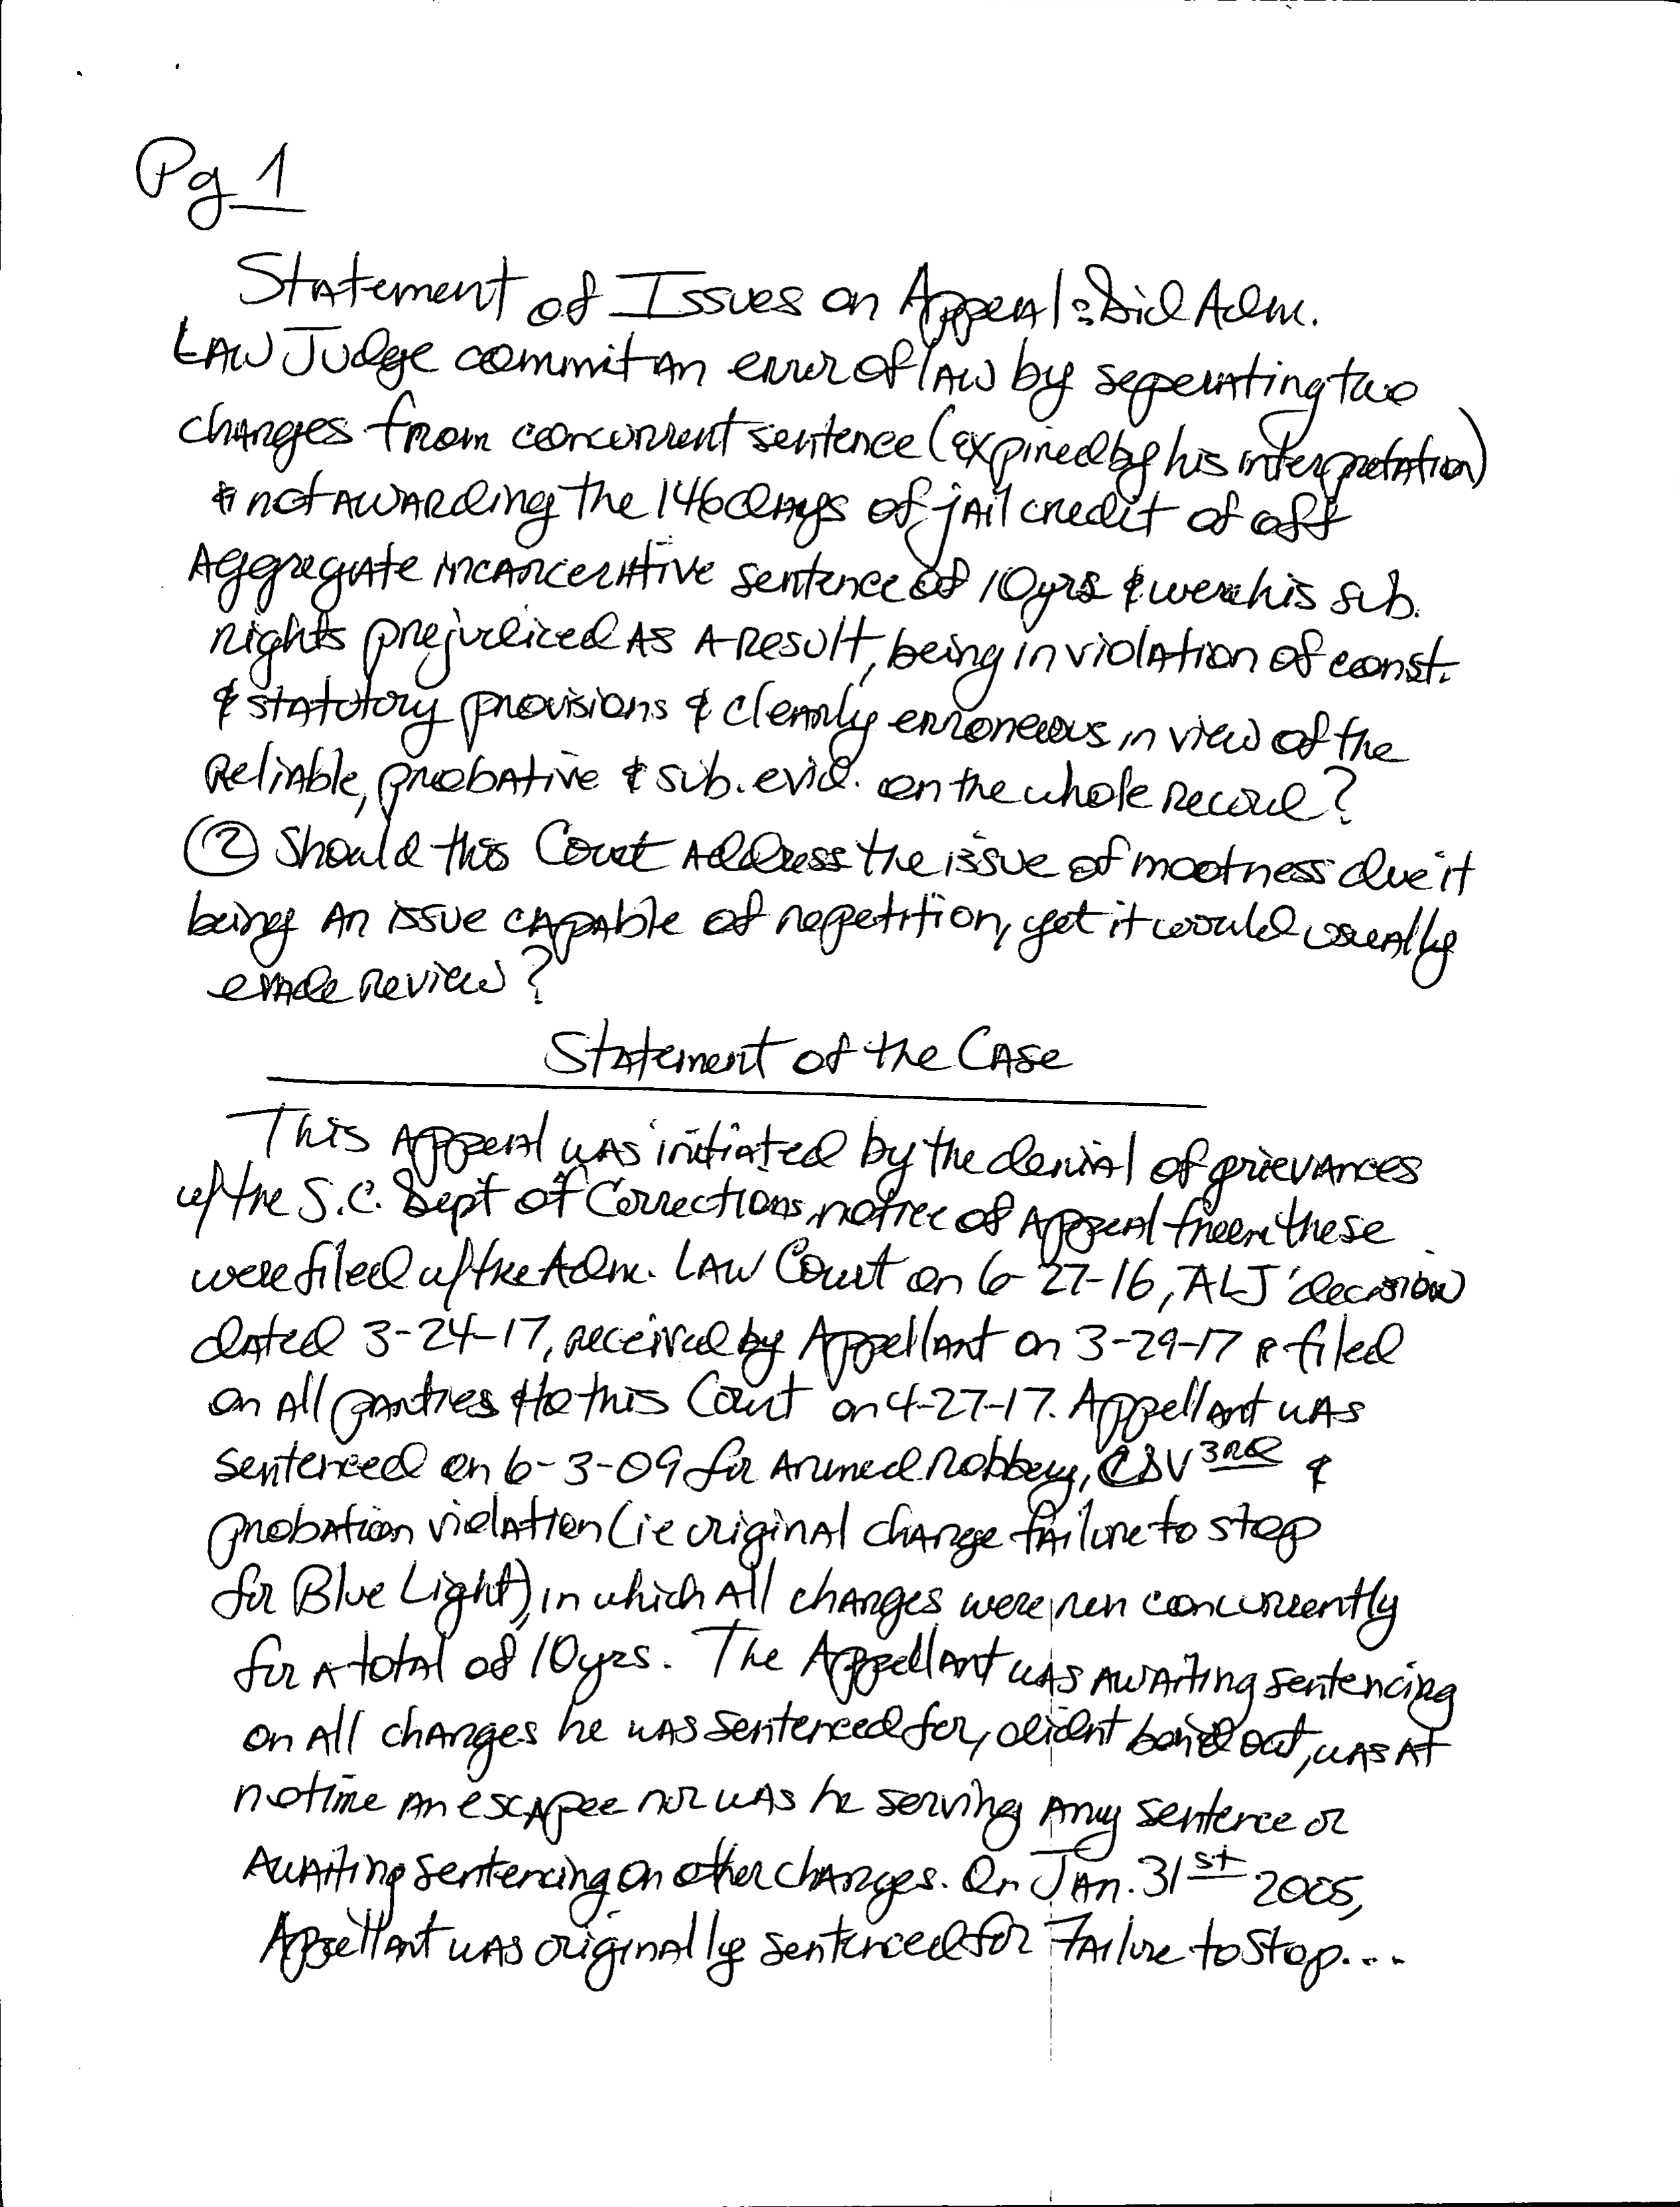 Pg 1
Statement of Issues on Appeal: Did Adm.
Law Judge commit an error of law by seperating two
charges from concurrent sentence (expired by his interpretation)
& not awarding the 146 days of jail credit of off
Aggregate incarcerative sentence of 10yrs & were his sub.
rights prejudiced as a result, being in violation of const.
& statutory provisions & clearly erroneous in view of the
Reliable, probative & sub. evid. on the whole record?
② Should this Court address the issue of mootness due it
being an issue capable of repetition, yet it would usually
evade review?
Statement of the Case
This Appeal was initiated by the denial of grievances
w/the S.C. Dept of Corrections, notice of Appeal from these
were filed w/the Adm. Law Court on 6-27-16, ALJ' decision
dated 3-24-17, received by Appellant on 3-29-17 & filed
on all parties & to this Court on 4-27-17. Appellant was
sentenced on 6-3-09 for Armed Robbery, CDV 3rd &
probation violation (ie original charge failure to stop
for Blue Light), in which all charges were run concurrently
for a total of 10yrs. The Appellant was awaiting sentencing
on all charges he was sentenced for, didnt bond out, was at
notime an escapee nor was he serving any sentence or
Awaiting sentencing on other charges. On Jan. 31st 2005,
Appellant was originally sentenced for Failure to Stop....